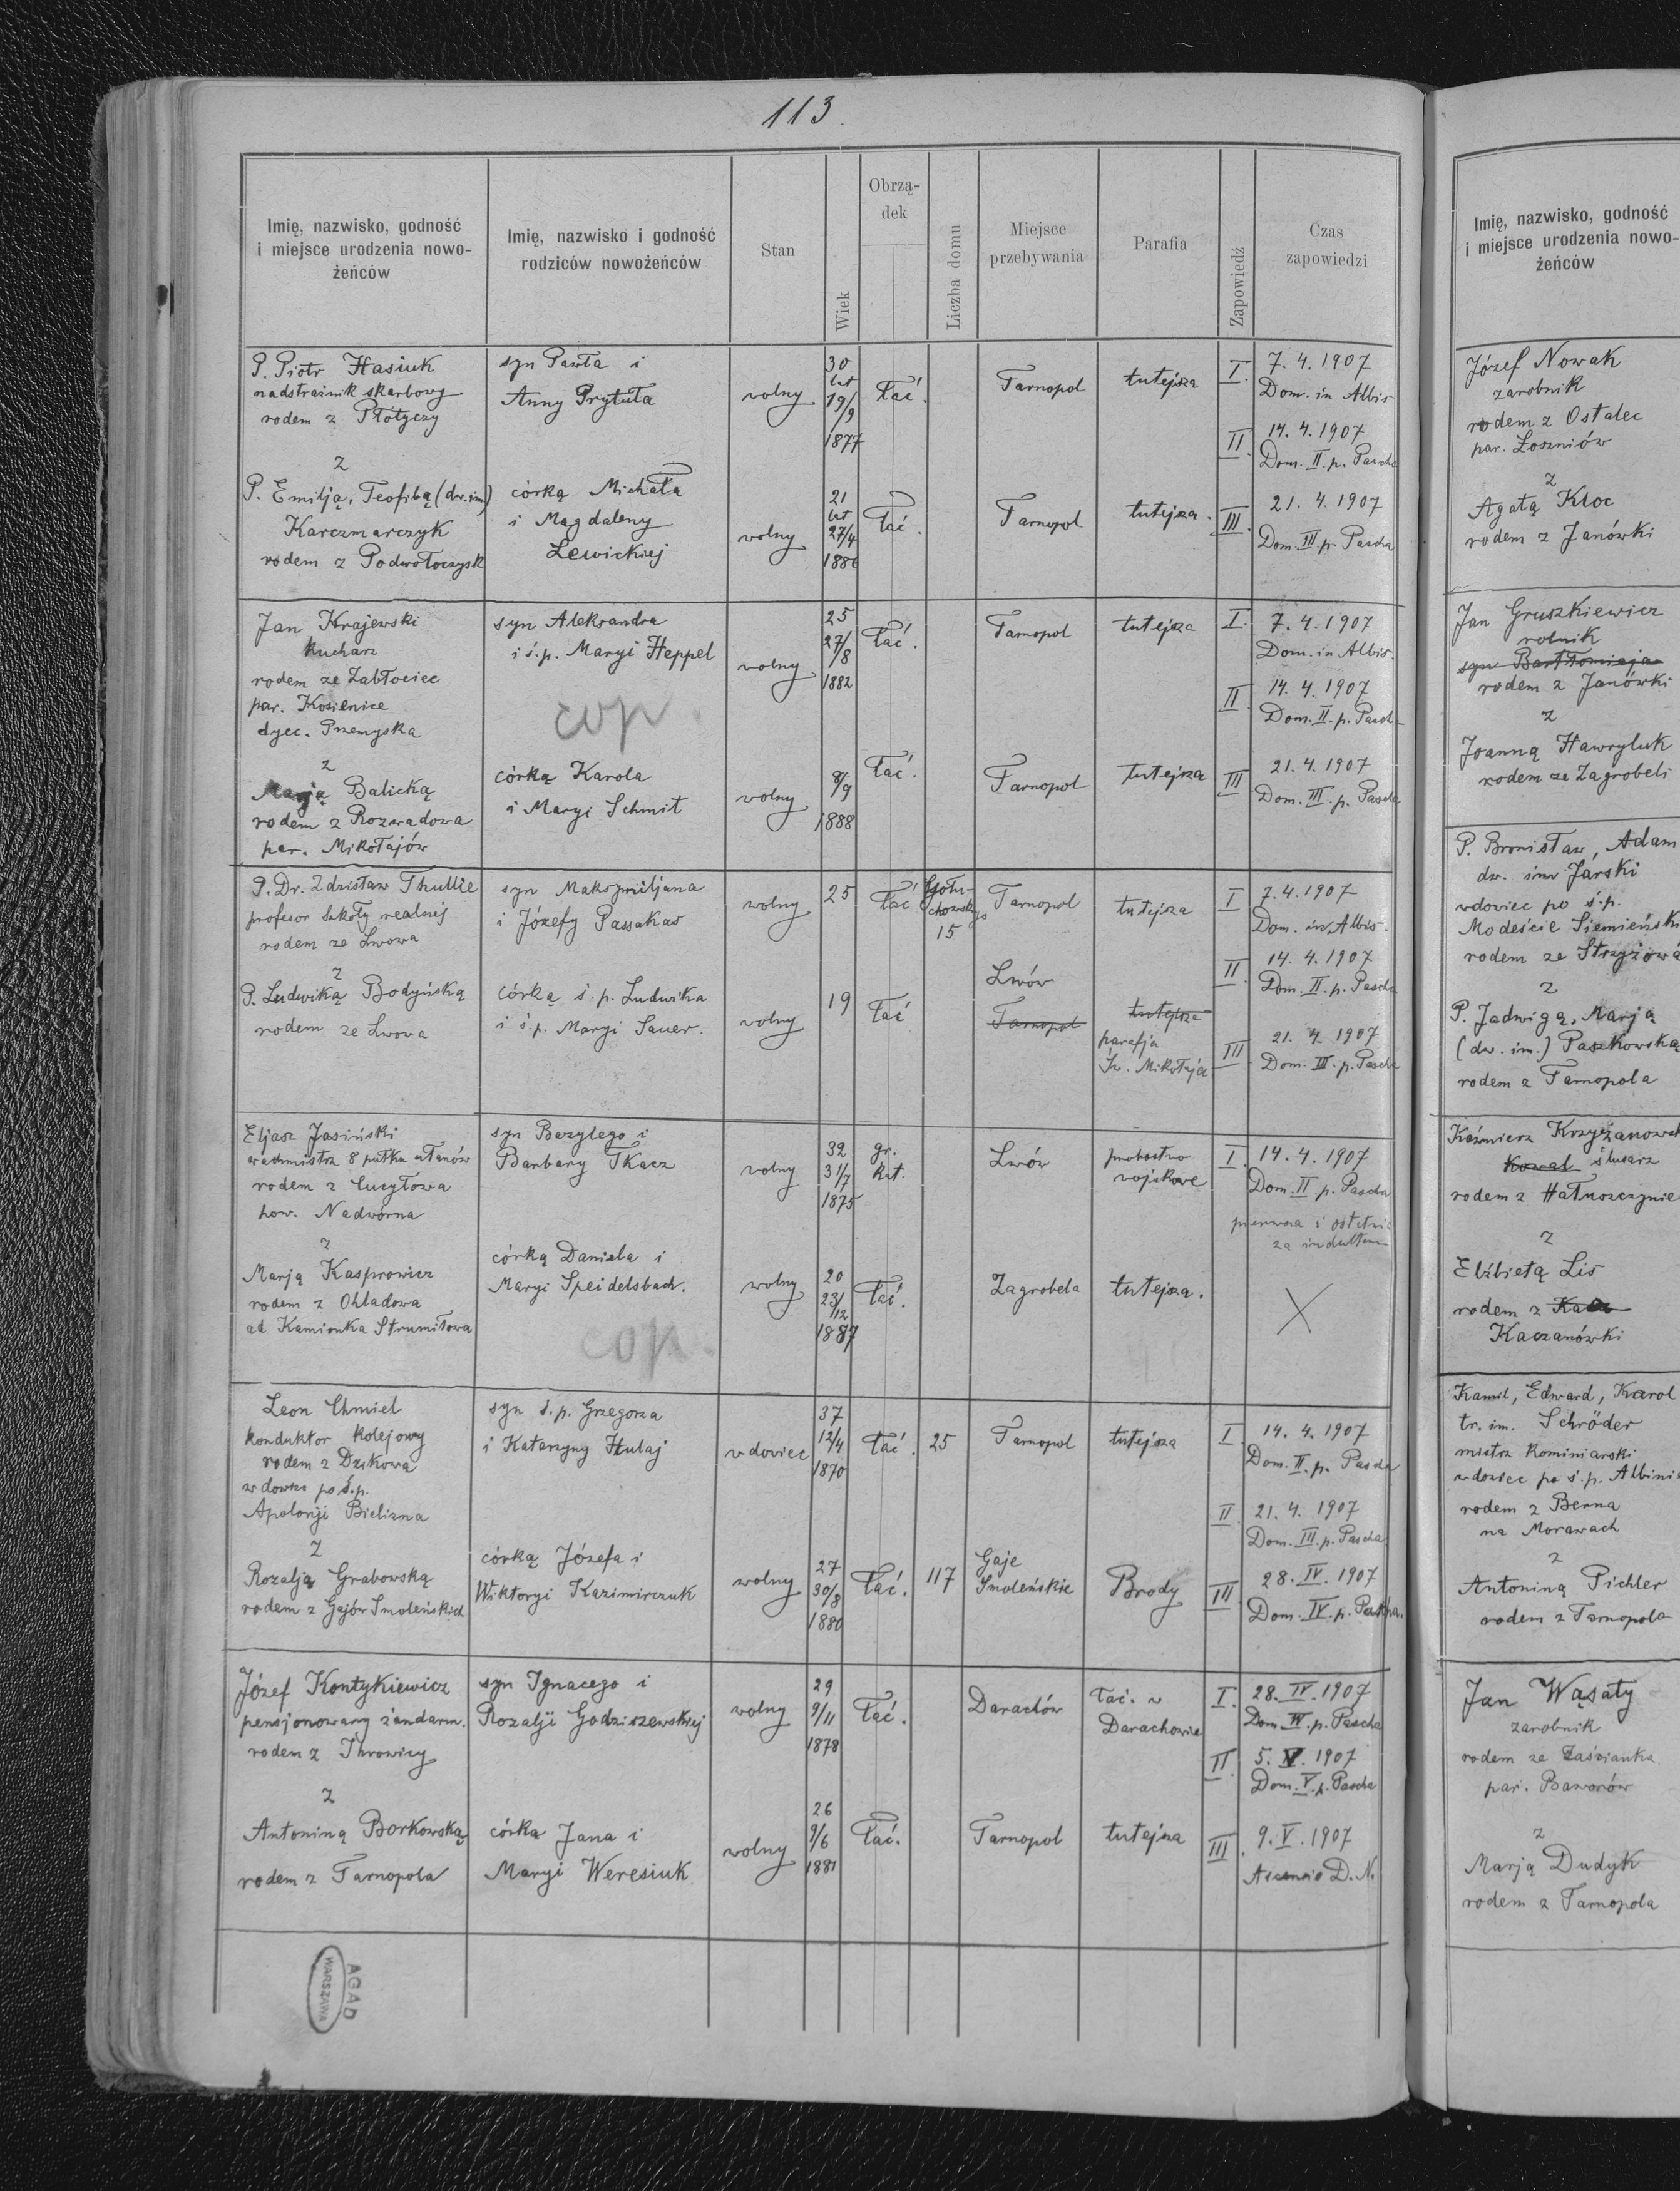 113.
Imię, nazwisko, godność
i miejsce urodzenia nowo-
żeńców
Imię, nazwisko i godność
rodziców nowożeńców
Stan
Wiek
Obrzą-
dek
Liczba domu
Miejsce
przebywania
Parafia
Zapowiedź
Czas
zapowiedzi
P. Piotr Hasiuk
nadstrażnik skarbowy
rodem z Płotyczy
syn Pawła i
Anny Prytuła
wolny
30
lat
19/9
1877
łać.
Tarnopol
tutejsza
I.
7. 4. 1907
Dom. in Albis
II.
14. 4. 1907
Dom. II. p. Pascha
z
P. Emilją, Teofilą (dw. im)
Karczmarczyk
rodem z Podwołoczysk
córką Michała
i Magdaleny
Lewickiej
wolny
21
lat
27/4
1886
łać.
Tarnopol
tutejsza.
III.
21. 4. 1907
Dom. III. p. Pascha
Jan Krajewski
kucharz
rodem ze Zabłociec
par. Kosienice
dyec. Przemyska
syn Aleksandra
i ś.p. Maryi Heppel
cop.
wolny
25
27/8
1882
łać.
Tarnopol
tutejsza
I.
7. 4. 1907
Dom. in Albis.
II.
14. 4. 1907
Dom. II. p. Pasch
z
Marją Balicką
rodem z Rozwadowa
par. Mikołajów
córką Karola
i Maryi Schmit
wolny
8/9
1888
łać.
Tarnopol
tutejsza
III
21. 4. 1907
Dom. III. p. Pascha
P. Dr. Zdzisław Thullie
profesor szkoły realnej
rodem ze Lwowa
syn Maksymiljana
i Józefy Passakas
wolny
25
łać
Gołu-
chowskiego
15
Tarnopol
tutejsza
I
7. 4. 1907
Dom. in Albis.
II.
14. 4. 1907
Dom. II. p. Pascha
z
P. Ludwiką Bodyńską
rodem ze Lwowa
córką ś.p. Ludwika
i ś.p. Maryi Sauer.
wolny
19
łać
Lwów
Tarnopol
tutejsza
parafja
Św. Mikołaja
III
21. 4. 1907
Dom. III. p. Pascha
Eljasz Jasiński
wachmistrz 8 pułku ułanów
rodem z Łucyłowa
pow. Nadwórna
syn Bazylego i
Barbary Tkacz
wolny
32
31/7
1875
gr.
kat.
Lwów
probostwo
wojskowe
I.
14. 4. 1907
Dom. II p. Pascha
pierwsza i ostatnia
za indultem
z
Marją Kasprowicz
rodem z Ohladowa
ad Kamionka Strumiłowa
córką Daniela i
Maryi Speidelsbach.
cop.
wolny
20
23/12
1887
łać.
Zagrobela
tutejsza.
Leon Chmiel
konduktor kolejowy
rodem z Dzikowa
wdowiec po ś.p.
Apolonji Bielizna
syn ś.p. Grzegorza
i Katarzyny Hulaj
wdowiec
37
12/4
1870
łać.
25
Tarnopol
tutejsza
I.
14. 4. 1907
Dom. II. p. Pascha
II.
21. 4. 1907
Dom. III. p. Pascha
z
Rozalją Grabowską
rodem z Gajów Smoleńskich
córką Józefa i
Wiktoryi Kazimirczuk
wolny
27
30/8
1880
łać.
117
Gaje
Smoleńskie
Brody
III.
28. IV. 1907
Dom. IV. p. Pascha.
Józef Kontykiewicz
pensjonowany żandarm.
rodem z Ihrowicy
syn Ignacego i
Rozalji Godziszewskiej
wolny
29
9/11
1878
łać.
Darachów
łać. w
Darachowie
I.
28. IV. 1907
Dom. IV. p. Pascha
II.
5. V. 1907
Dom. V. p. Pascha
z
Antoniną Borkowską
rodem z Tarnopola
córka Jana i
Maryi Weresiuk
wolny
26
9/6
1881
łać.
Tarnopol
tutejsza
III.
9. V. 1907
Ascensio D. N.
AGAD
WARSZAWA
Imię, nazwisko, godność
i miejsce urodzenia nowo-
żeńców
Józef Nowak
zarobnik
rodem z Ostalec
par. Łoszniów
z
Agatą Kloc
rodem z Janówki
Jan Gruszkiewicz
rolnik
syn Bartłomieja
rodem z Janówki
z
Joanną Hawryluk
rodem ze Zagrobeli
P. Bronisław, Adam
dw. imn Jarski
wdowiec po ś.p.
Modeście Siemieńsk
rodem ze Strzyżowa
z
P. Jadwigą, Marją
(dw. im.) Paszkowską
rodem z Tarnopola
Kaźmierz Krzyżanowsk
Kowal ślusarz
rodem z Hałuszczynie
z
Elżbietą Lis
rodem z
Kaczanówki
Kamil, Edward, Karol
tr. im. Schröder
mistrz kominiarski
wdowiec po ś.p. Albini
rodem z Berna
na Morawach
z
Antoniną Pichler
rodem z Tarnopola
Jan Wąsaty
zarobnik
rodem ze Zaścianka
par. Baworów
z
Marją Dudyk
rodem z Tarnopola